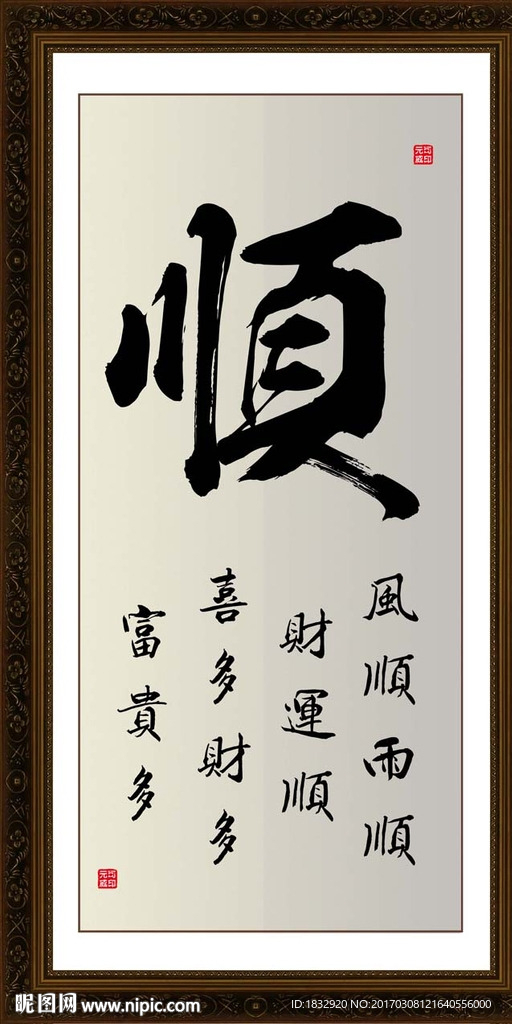 順
風順雨順
財運順
喜多財多
富貴多
昵图网 www.nipic.com
ID:1832920 NO:20170308121640556000